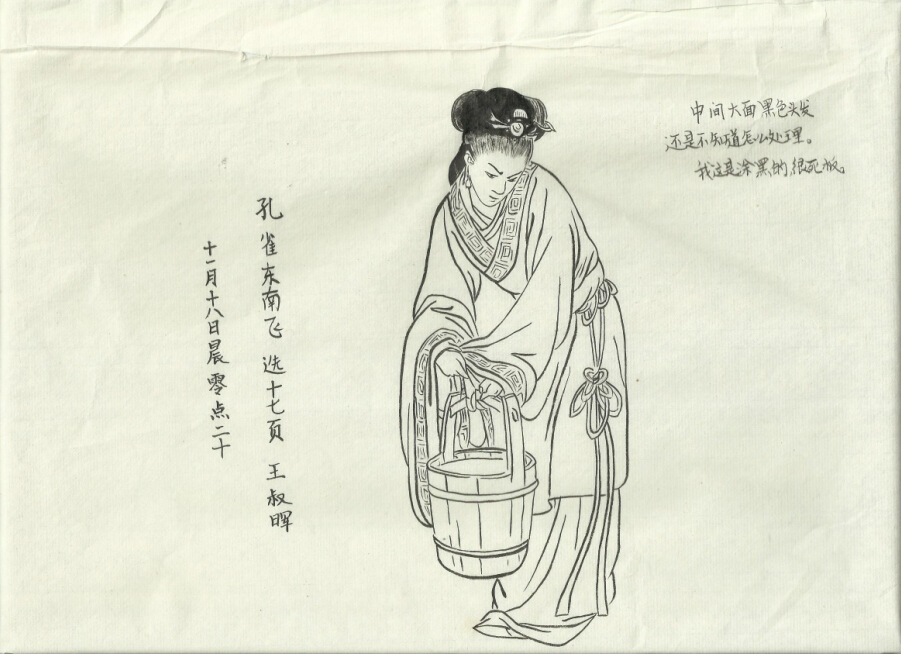 中间大面黑色头发
还是不知道怎么处理。
我这是涂黑的,很死板。
孔雀东南飞 选十七页 王叔晖
十一月十八日晨零点二十